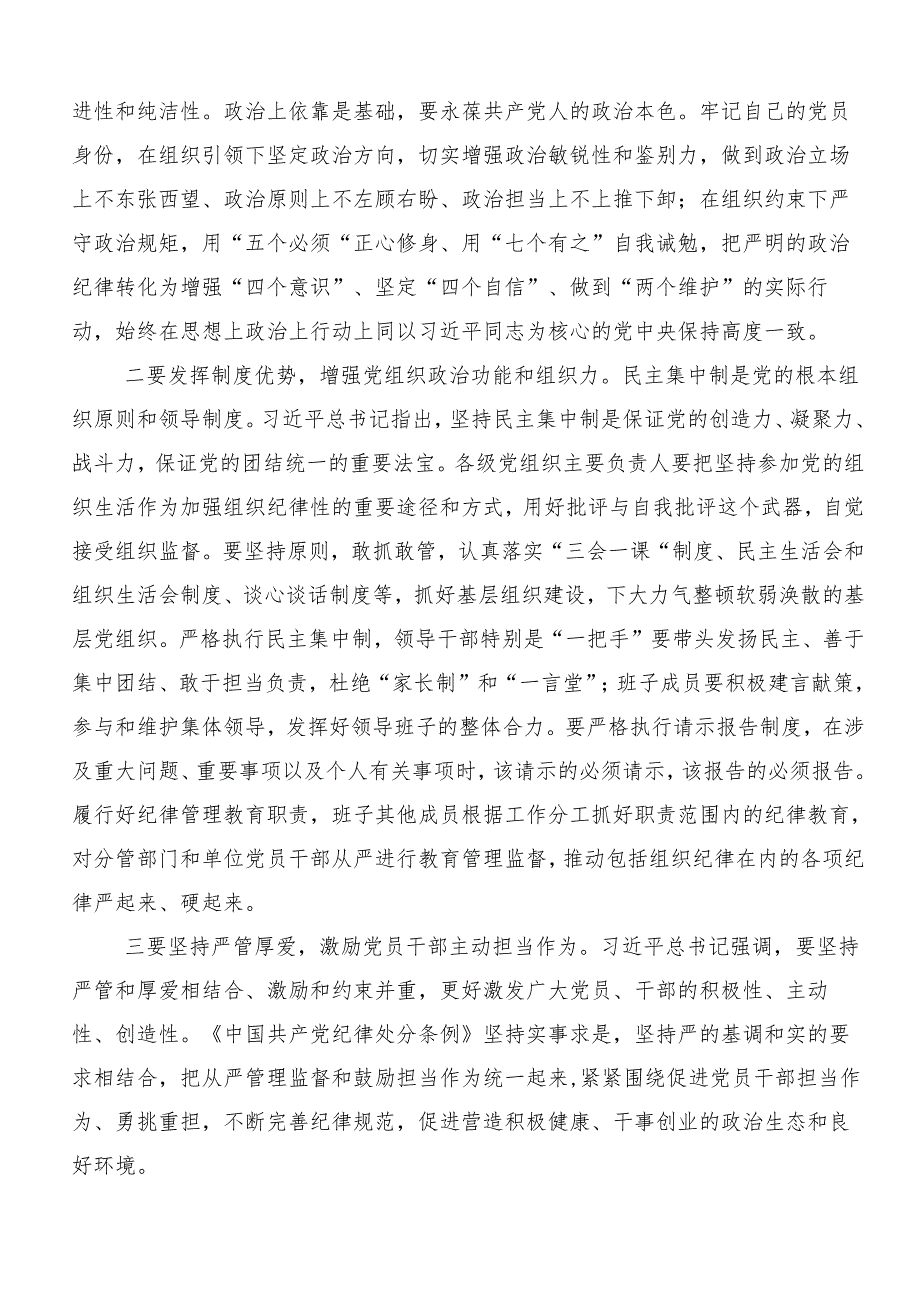 进性和纯洁性。政治上依靠是基础，要永葆共产党人的政治本色。牢记自己的党员
身份，在组织引领下坚定政治方向，切实增强政治敏锐性和鉴别力，做到政治立场
上不东张西望、政治原则上不左顾右盼、政治担当上不上推下卸；在组织约束下严
守政治规矩，用“五个必须“正心修身、用“七个有之”自我诫勉，把严明的政治
纪律转化为增强“四个意识”、坚定“四个自信”、做到“两个维护”的实际行
动，始终在思想上政治上行动上同以习近平同志为核心的党中央保持高度一致。
二要发挥制度优势，增强党组织政治功能和组织力。民主集中制是党的根本组
织原则和领导制度。习近平总书记指出，坚持民主集中制是保证党的创造力、凝聚力、
战斗力，保证党的团结统一的重要法宝。各级党组织主要负责人要把坚持参加党的组
织生活作为加强组织纪律性的重要途径和方式，用好批评与自我批评这个武器，自觉
接受组织监督。要坚持原则，敢抓敢管，认真落实“三会一课“制度、民主生活会和
组织生活会制度、谈心谈话制度等，抓好基层组织建设，下大力气整顿软弱涣散的基
层党组织。严格执行民主集中制，领导干部特别是“一把手”要带头发扬民主、善于
集中团结、敢于担当负责，杜绝“家长制”和“一言堂”；班子成员要积极建言献策，
参与和维护集体领导，发挥好领导班子的整体合力。要严格执行请示报告制度，在涉
及重大问题、重要事项以及个人有关事项时，该请示的必须请示，该报告的必须报告。
履行好纪律管理教育职责，班子其他成员根据工作分工抓好职责范围内的纪律教育，
对分管部门和单位党员干部从严进行教育管理监督，推动包括组织纪律在内的各项纪
律严起来、硬起来。
三要坚持严管厚爱，激励党员干部主动担当作为。习近平总书记强调，要坚持
严管和厚爱相结合、激励和约束并重，更好激发广大党员、干部的积极性、主动
性、创造性。《中国共产党纪律处分条例》坚持实事求是，坚持严的基调和实的要
求相结合，把从严管理监督和鼓励担当作为统一起来,紧紧围绕促进党员干部担当作
为、勇挑重担，不断完善纪律规范，促进营造积极健康、干事创业的政治生态和良
好环境。